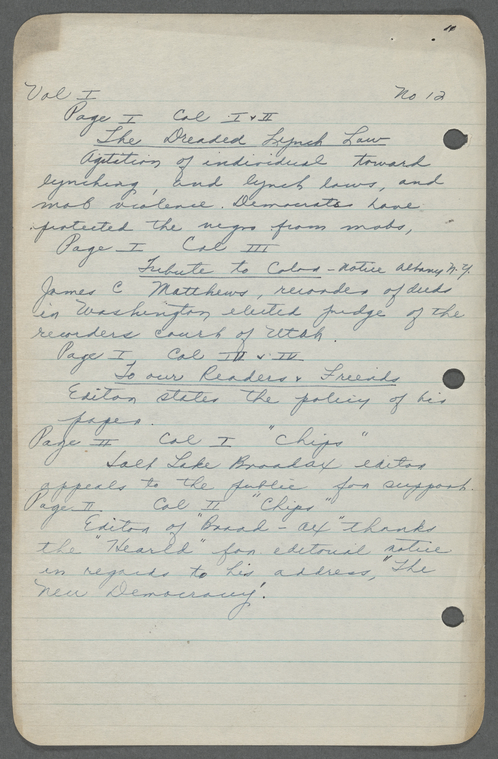 Vol I No 12
Page I Col I & II
The Dreaded Lynch Law
Agitation of individual toward
lynching, and lynch laws, and
mob violence. Democrats have
protected the negro from mobs,
Page I Col III
Tribute to Colos - Notice Albany N.Y.
James C Matthews, recorder of deeds
in Washington elected judge of the
recorders court of Utah.
Page I Col III & IV
To our Readers & Friends
Editor states the policy of his
paper.
Page II Col I "Chips"
Salt Lake Broadax editor
appeals to the public for support.
Page II Col II "Chips"
Editor of "Broad-ax" thanks
the "Hearld" for editorial notice
in regards to his address, "The
New Democracy".